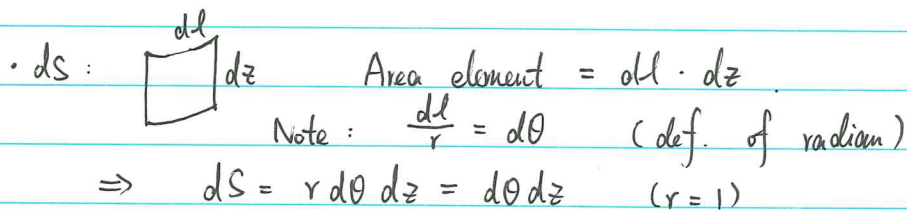 dl
· dS : dz Area element = dl · dz
Note : dl/r = dθ (def. of radian)
⇒ dS = r dθ dz = dθ dz (r = 1)